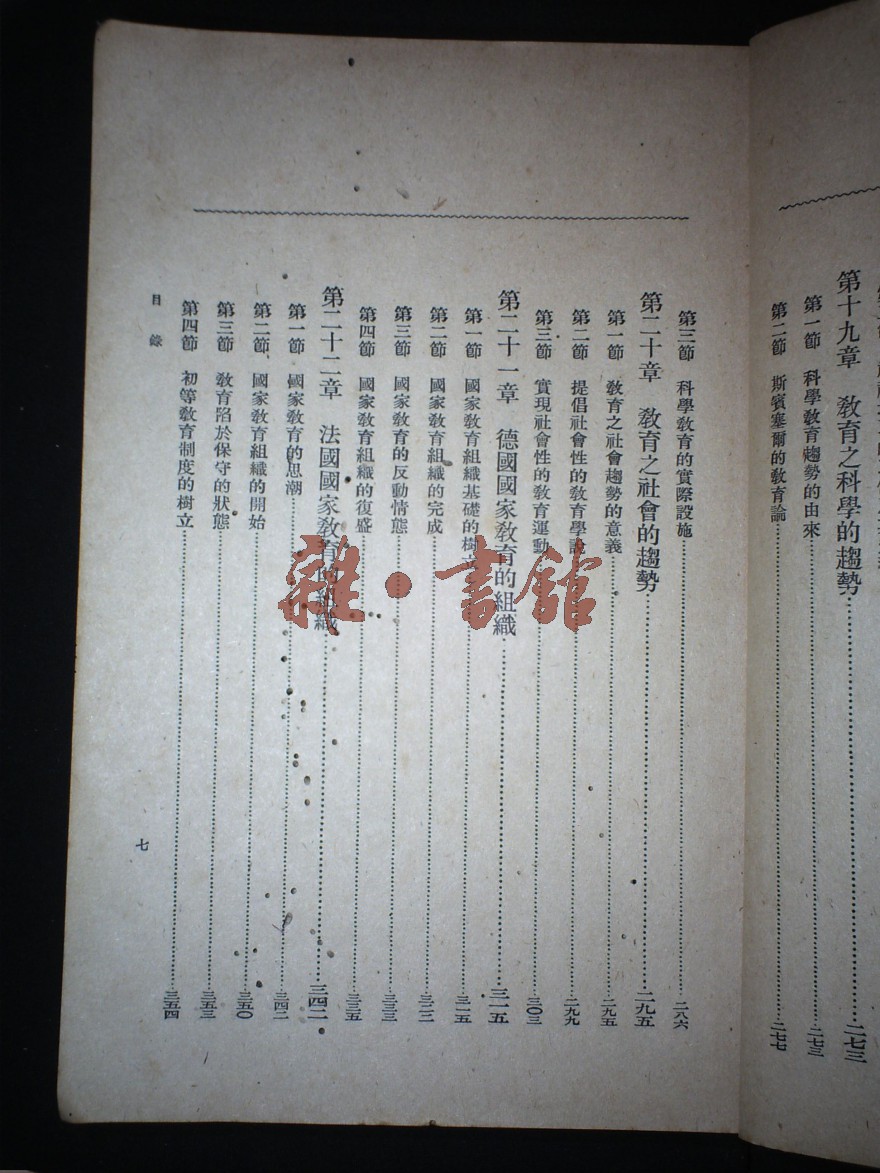 第十九章　教育之科學的趨勢……二七三
第一節　科學教育趨勢的由來……二七三
第二節　斯賓塞爾的教育論……二七七
第三節　科學教育的實際設施……二八六
第二十章　教育之社會的趨勢……二九五
第一節　教育之社會趨勢的意義……二九五
第二節　提倡社會性的教育學說……二九九
第三節　實現社會性的教育運動……三〇三
第二十一章　德國國家教育的組織……三一五
第一節　國家教育組織基礎的樹立……三一五
第二節　國家教育組織的完成……三二二
第三節　國家教育的反動情態……三三三
第四節　國家教育組織的復盛……三三五
第二十二章　法國國家教育的組織……三四二
第一節　國家教育的思潮……三四二
第二節　國家教育組織的開始……三五〇
第三節　教育陷於保守的狀態……三五三
第四節　初等教育制度的樹立……三五四
目錄
七
雜·書館